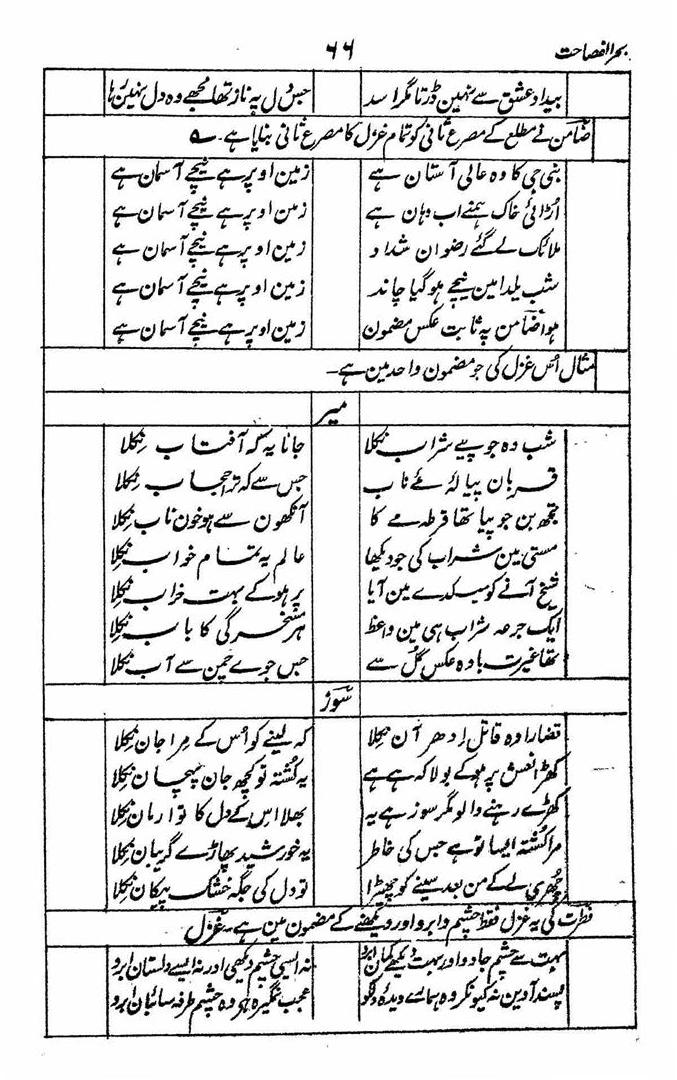 بحر الفصاحت
۶۶
بیداد عشق سے نہین ڈرتا مگر اسد جس دل پہ ناز تھا مجھے وہ دل نہین رہا
ضامن نے مطلع کے مصرع ثانی کو تمام غزل کا مصرع ثانی بنایا ہے۔
بنی جی کا وہ عالی آستان ہے زمین اوپر ہے نیچے آسمان ہے
اُڑائی خاک ہمنے اب وہان ہے زمین اوپر ہے نیچے آسمان ہے
ملائک لے گئے رضوان شداد زمین اوپر ہے نیچے آسمان ہے
شب یلدا مین نیچے ہو گیا چاند زمین اوپر ہے نیچے آسمان ہے
ہوا ضامن پہ ثابت عکس مضمون زمین اوپر ہے نیچے آسمان ہے
مثال اُس غزل کی جو مضمون واحد مین ہے۔
میر
شب وہ جو پیے شراب نکلا جانا یہ کہ آفتاب نکلا
قربان پیالۂ مے ناب جس سے کہ ترا حجاب نکلا
تجھ بن جو پیا تھا قرطہ مے کا آنکھون سے ہو خون ناب نکلا
مستی مین شراب کی جو دیکھا عالم یہ تمام خواب نکلا
شیخ آنے کو میکدے مین آیا پر ہو کے بہت خراب نکلا
ایک جرعہ شراب ہی مین واعظ ہر مسخرگی کا باب نکلا
تھا غیرت بادہ عکس گل سے جس جوے چمن سے آب نکلا
سوز
قضارا وہ قاتل اِدھر آن نکلا کہ لینے کو اُس کے مرا جان نکلا
کھڑا نعش پر ہو کے بولا کہ ہے ہے یہ کشتہ تو کچھ جان پہچان نکلا
کھڑے رہنے والو مگر سوز ہے یہ بھلا اس کے دل کا تو ارمان نکلا
مرا کشتہ ایسا تو ہے جس کی خاطر یہ خورشید پھاڑے گریبان نکلا
چھری لے کے من بعد سینے کو چیرا تو دل کی جگہ خشک پیکان نکلا
فطرت کی یہ غزل فقط چشم و ابرو اور دیکھنے کے مضمون مین ہے۔ غزل
بہت سے چشم جادو اور بہت دیکھے کمان ابرو نہ ایسی چشم دیکھی اور نہ ایسے دلستان ابرو
پسند آوین نہ کیونکر وہ ہمارے دیدۂ دل کو عجب نمگیرہ ہر وہ چشم طرفہ سائبان ابرو